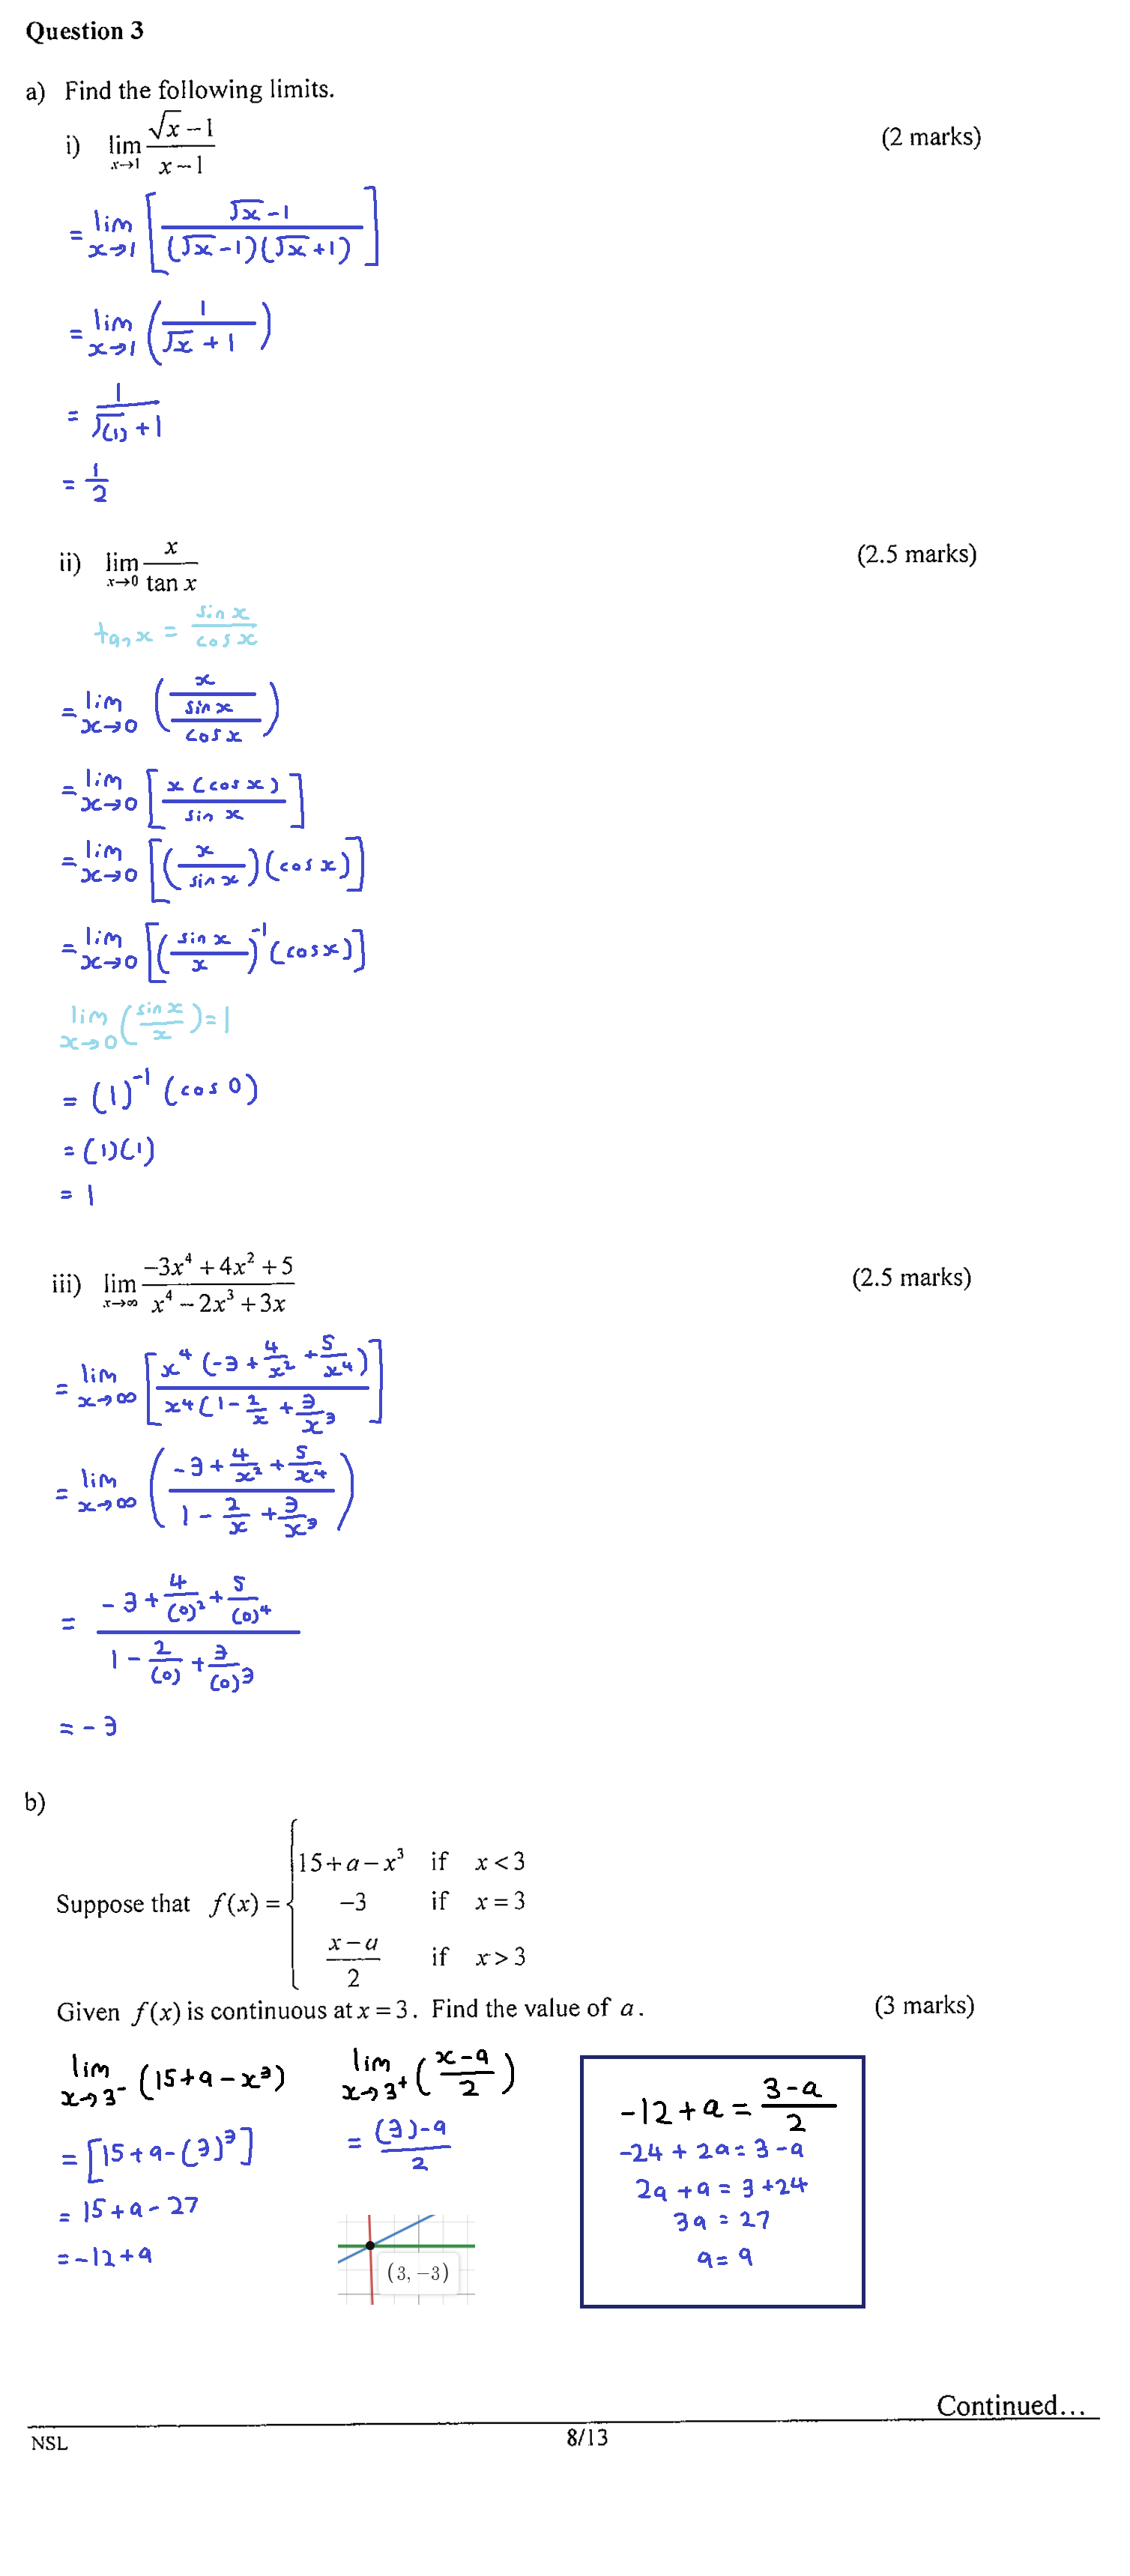 Question 3
a) Find the following limits.
i) lim x→1 (√x − 1)/(x − 1) (2 marks)
= lim x→1 [(√x − 1)/((√x − 1)(√x + 1))]
= lim x→1 (1/(√x + 1))
= 1/(√(1) + 1)
= 1/2
ii) lim x→0 x/tan x (2.5 marks)
tan x = sin x/cos x
= lim x→0 (x/(sin x/cos x))
= lim x→0 [x (cos x)/sin x]
= lim x→0 [(x/sin x)(cos x)]
= lim x→0 [(sin x/x)⁻¹(cos x)]
lim x→0 (sin x/x) = 1
= (1)⁻¹ (cos 0)
= (1)(1)
= 1
iii) lim x→∞ (−3x⁴ + 4x² + 5)/(x⁴ − 2x³ + 3x) (2.5 marks)
= lim x→∞ [x⁴ (−3 + 4/x² + 5/x⁴)/x⁴ (1 − 2/x + 3/x³]
= lim x→∞ ((−3 + 4/x² + 5/x⁴)/(1 − 2/x + 3/x³))
= (−3 + 4/(0)² + 5/(0)⁴)/(1 − 2/(0) + 3/(0)³)
= −3
b)
Suppose that f(x) = {
15 + a − x³ if x < 3
−3 if x = 3
(x − a)/2 if x > 3
Given f(x) is continuous at x = 3. Find the value of a. (3 marks)
lim x→3⁻ (15 + a − x³)
= [15 + a − (3)³]
= 15 + a − 27
= −12 + a
lim x→3⁺ ((x − a)/2)
= ((3) − a)/2
(3, −3)
−12 + a = (3 − a)/2
−24 + 2a = 3 − a
2a + a = 3 + 24
3a = 27
a = 9
Continued...
NSL 8/13